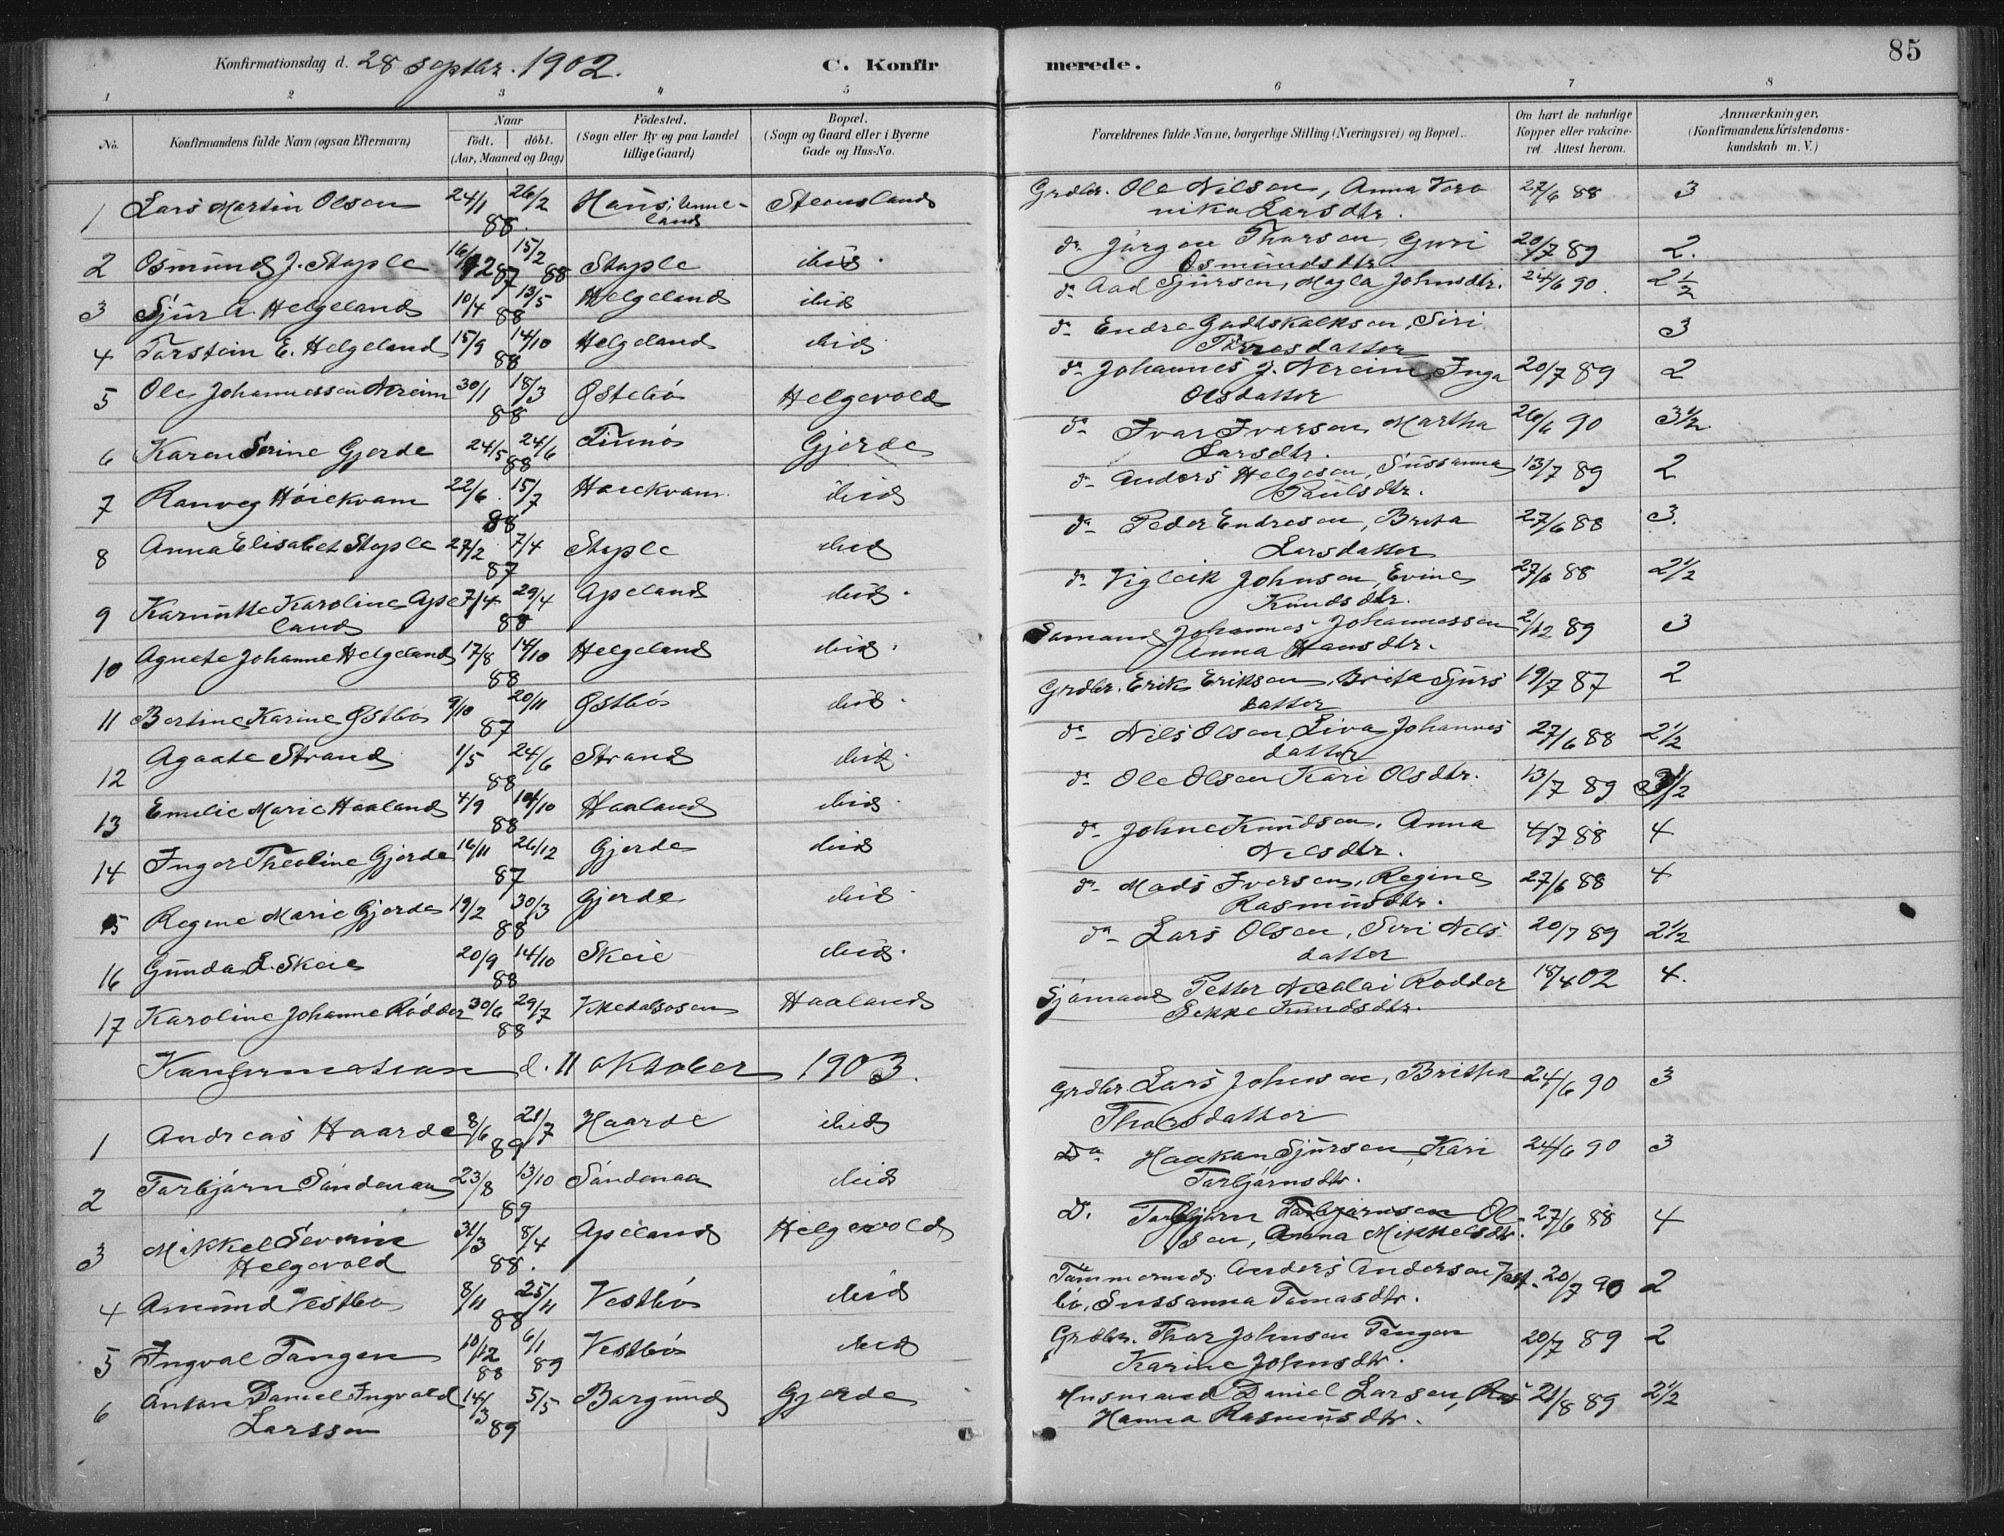 Konfirmationsdag d. 28 septbr. 1902.
C. Konfirmerede.
85
1 2 3 4 5 6 7 8
No. Konfirmandens fulde Navn (ogsaa Efternavn) Naar født. døbt. (Aar, Maaned og Dag) Födested. (Sogn eller By og paa Landet tillige Gaard) Bopæl. (Sogn og Gaard eller i Byerne Gade og Hus-No. Forældrenes fulde Navne, borgerlige Stilling (Næringsvei) og Bopæl. Om havt de naturlige Kopper eller vakcineret. Attest herom. Anmærkninger. (Konfirmandens Kristendomskundskab m. V.)
1 Lars Martin Olsen 24/1 26/2 88. Steensland Grdbr. Ole Nilsen, Anna Veronika Larsdtr. 27/6 88 3
2 Osmund J. Stople 16/12 87 15/2 88 Stople ibid. do Jørgen Thorsen, Guri Osmundsdtr. 20/7 89 2.
3 Sjur A. Helgeland 10/4 13/5 88 Helgeland ibid do Aad Sjursen, Magla Johnsdtr. 24/6 90. 2 1/2
4 Torstein E. Helgeland 15/9 14/10 88 Helgeland ibid. do Endre Godtskalksen, Siri 3
5 Ole Johannessen Nereim 30/1 18/3 88 Østebø Helgevold do Johannes J. Nereim, Inga Olsdatter 20/7 89 2
6 Karen Serine Gjerde 24/5 24/6 88 Gjerde do Ivar Ivarsen, Martha Larsdtr. 26/6 90 3 1/2
7 Ranveg Høiekvam 22/6 15/7 88 Høiekvam ibid do Anders Helgesen, Sussanna Paulsdtr. 13/7 89 2
8 Anna Elisabet Stople 27/2 7/4 87 Stople ibid do Peder Endresen, Brita Larsdatter 27/6 88 3.
9 Karoline Apeland 7/4 29/4 88 Apeland ibid. do Vigleik Johnsen, Evine Knudsdtr. 27/6 88 2 1/2
10 Agnete Johanne Helgeland 17/8 14/10 88 Helgeland ibid. Sømand Johannes Johannessen Anna Hansdtr. 2/12 89 3
11 Bertine Karine Østbø 9/10 20/11 87 Østbø ibid. Grdbr. Erik Eriksen, Brita Sjursdatter 19/7 87 2
12 Agaate Strand 1/5 24/6 88 Strand ibid. do Nils Olsen, Liva Johannesdatter 27/6 88 2 1/2
13 Emelie Marie Haaland 4/9 14/10 88 Haaland ibid. do Ole Olsen Kari Olsdtr. 13/7 89
14 Inger Theoline Gjerde 16/11 26/12 87 Gjerde ibid do Johne Knudsen, Anna Nilsdtr. 4/7 88 4
15 Regine Marie Gjerde 19/2 30/3 88 Gjerde ibid do Mads Iversen, Regine Rasmusdtr. 27/6 88 4
16 Gunda L. Skeie 20/9 14/10 88 Skeie ibid. do Lars Olsen, Siri Nilsdatter 20/7 89 2 1/2
17 Karoline Johanne Rödder 30/6 29/7 88 Haaland Sjømand Petter Nicolai Rodder Knudsdtr. 18/4 02 4.
d. 11 oktober 1903.
1 Andreas Haarde 8/6 21/7 89 Haarde ibid Grdbr. Lars Johnsen, Britha Thorsdatter 24/6 90 3
2 Torbjørn Søndenaa 23/8 13/10 89 Søndenaa ibid Do Haakon Sjursen, Kari Torbjørnsdtr. 24/6 90 3
3 Mikkel Severin Helgevold 31/3 8/4 88. Apeland Helgevold D. Torbjørn Torbjørnsen Olsen, Anna Mikkelsdtr. 27/6 88 4
4 Amund Vestbø 8/11 25/11 88 Vestbø ibid Tømmermd. Anders Andersen Vestbø, Sussanna Tomasdtr. 20/7 90 2
5 Ingval Tangen 10/12 88 6/1 89 Vestbø ibid Grdbr. Thor Johnsen Tangen Karine Johnsdtr. 20/7 89 2
6 Anton Daniel Ingvald Larssen 14/3 5/5 89 Borgund Gjerde Husmand Daniel Larsen, Hanna Rasmusdtr. 21/8 89 2 1/2